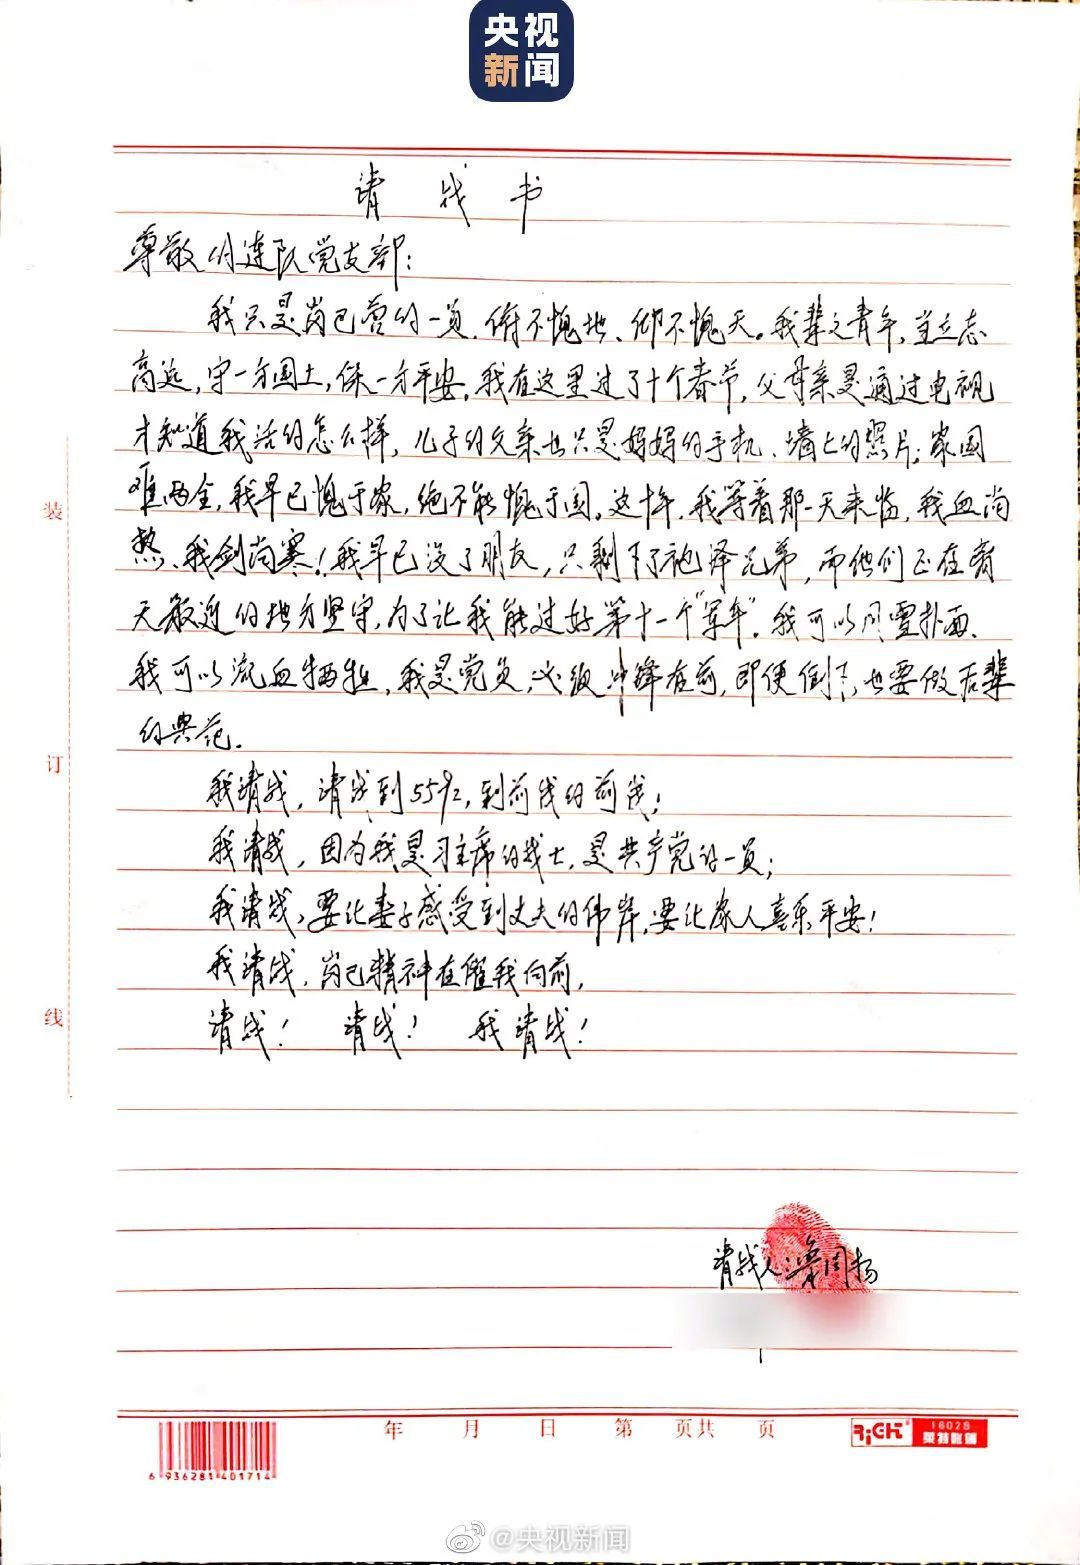 央视
新闻
请战书
尊敬的连队党支部：
我只是岗巴营的一员、俯不愧地、仰不愧天。我辈之青年，当立志
高远，守一方国土，保一方平安。我在这里过了十个春节，父母亲是通过电视
才知道我活的怎么样，儿子的父亲也只是妈妈的手机、墙上的照片；家国
难两全，我早已愧于家，绝不能愧于国。这十年，我等着那一天来临，我血尚
热、我剑尚寒！我早已没了朋友，只剩下了袍泽兄弟，而他们正在离
天最近的地方坚守，为了让我能过好第十一个“军年”。我可以风雪扑面、
我可以流血牺牲，我是党员，必须冲锋在前，即使倒下，也要做后辈
的典范。
我请战，请战到5592，到前线的前线；
我请战，因为我是习主席的战士，是共产党的一员；
我请战，要让妻子感受到丈夫的伟岸，要让家人喜乐平安！
我请战，岗巴精神在催我向前，
请战！ 请战！ 我请战！
请战人：梁国扬
装
订
线
年 月 日 第 页共 页
RiCH 16028
莱特账簿
6 936281 401714
@央视新闻